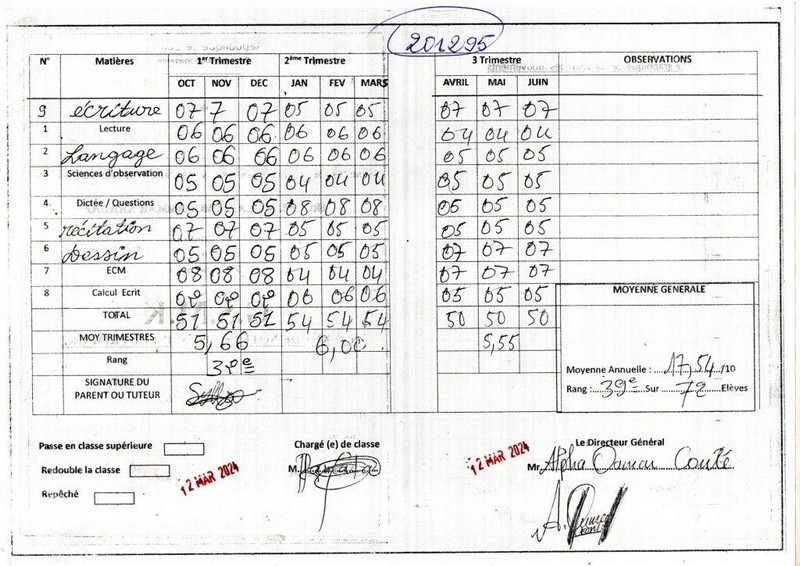 201295
N° Matières 1er Trimestre 2ème Trimestre 3 Trimestre OBSERVATIONS
OCT NOV DEC JAN FEV MARS AVRIL MAI JUIN
9 écriture 07 7 07 05 05 05 07 07 07
1 Lecture 06 06 06 06 06 06 04 04 04
2 Langage 06 06 06 06 06 06 05 05 05
3 Sciences d'observation 05 05 05 04 04 04 05 05 05
4 Dictée / Questions 05 05 05 08 08 08 05 05 05
5 récitation 07 07 07 05 05 05 05 05 05
6 Dessin 05 05 05 05 05 05 07 07 07
7 ECM 08 08 08 04 04 04 07 07 07
8 Calcul Ecrit 06 06 06 05 05 05
TOTAL 51 51 51 54 54 54 50 50 50
MOYENNE GENERALE
MOY TRIMESTRES 5,66 6,00 5,55
Rang 39e
Moyenne Annuelle : 17,54 /10
Rang : 39e Sur 72 Elèves
SIGNATURE DU
PARENT OU TUTEUR
Passe en classe supérieure
Redouble la classe
Repêché
12 MAR 2024
Chargé (e) de classe
M.
12 MAR 2024
Le Directeur Général
Mr. Alpha Oamar Conté